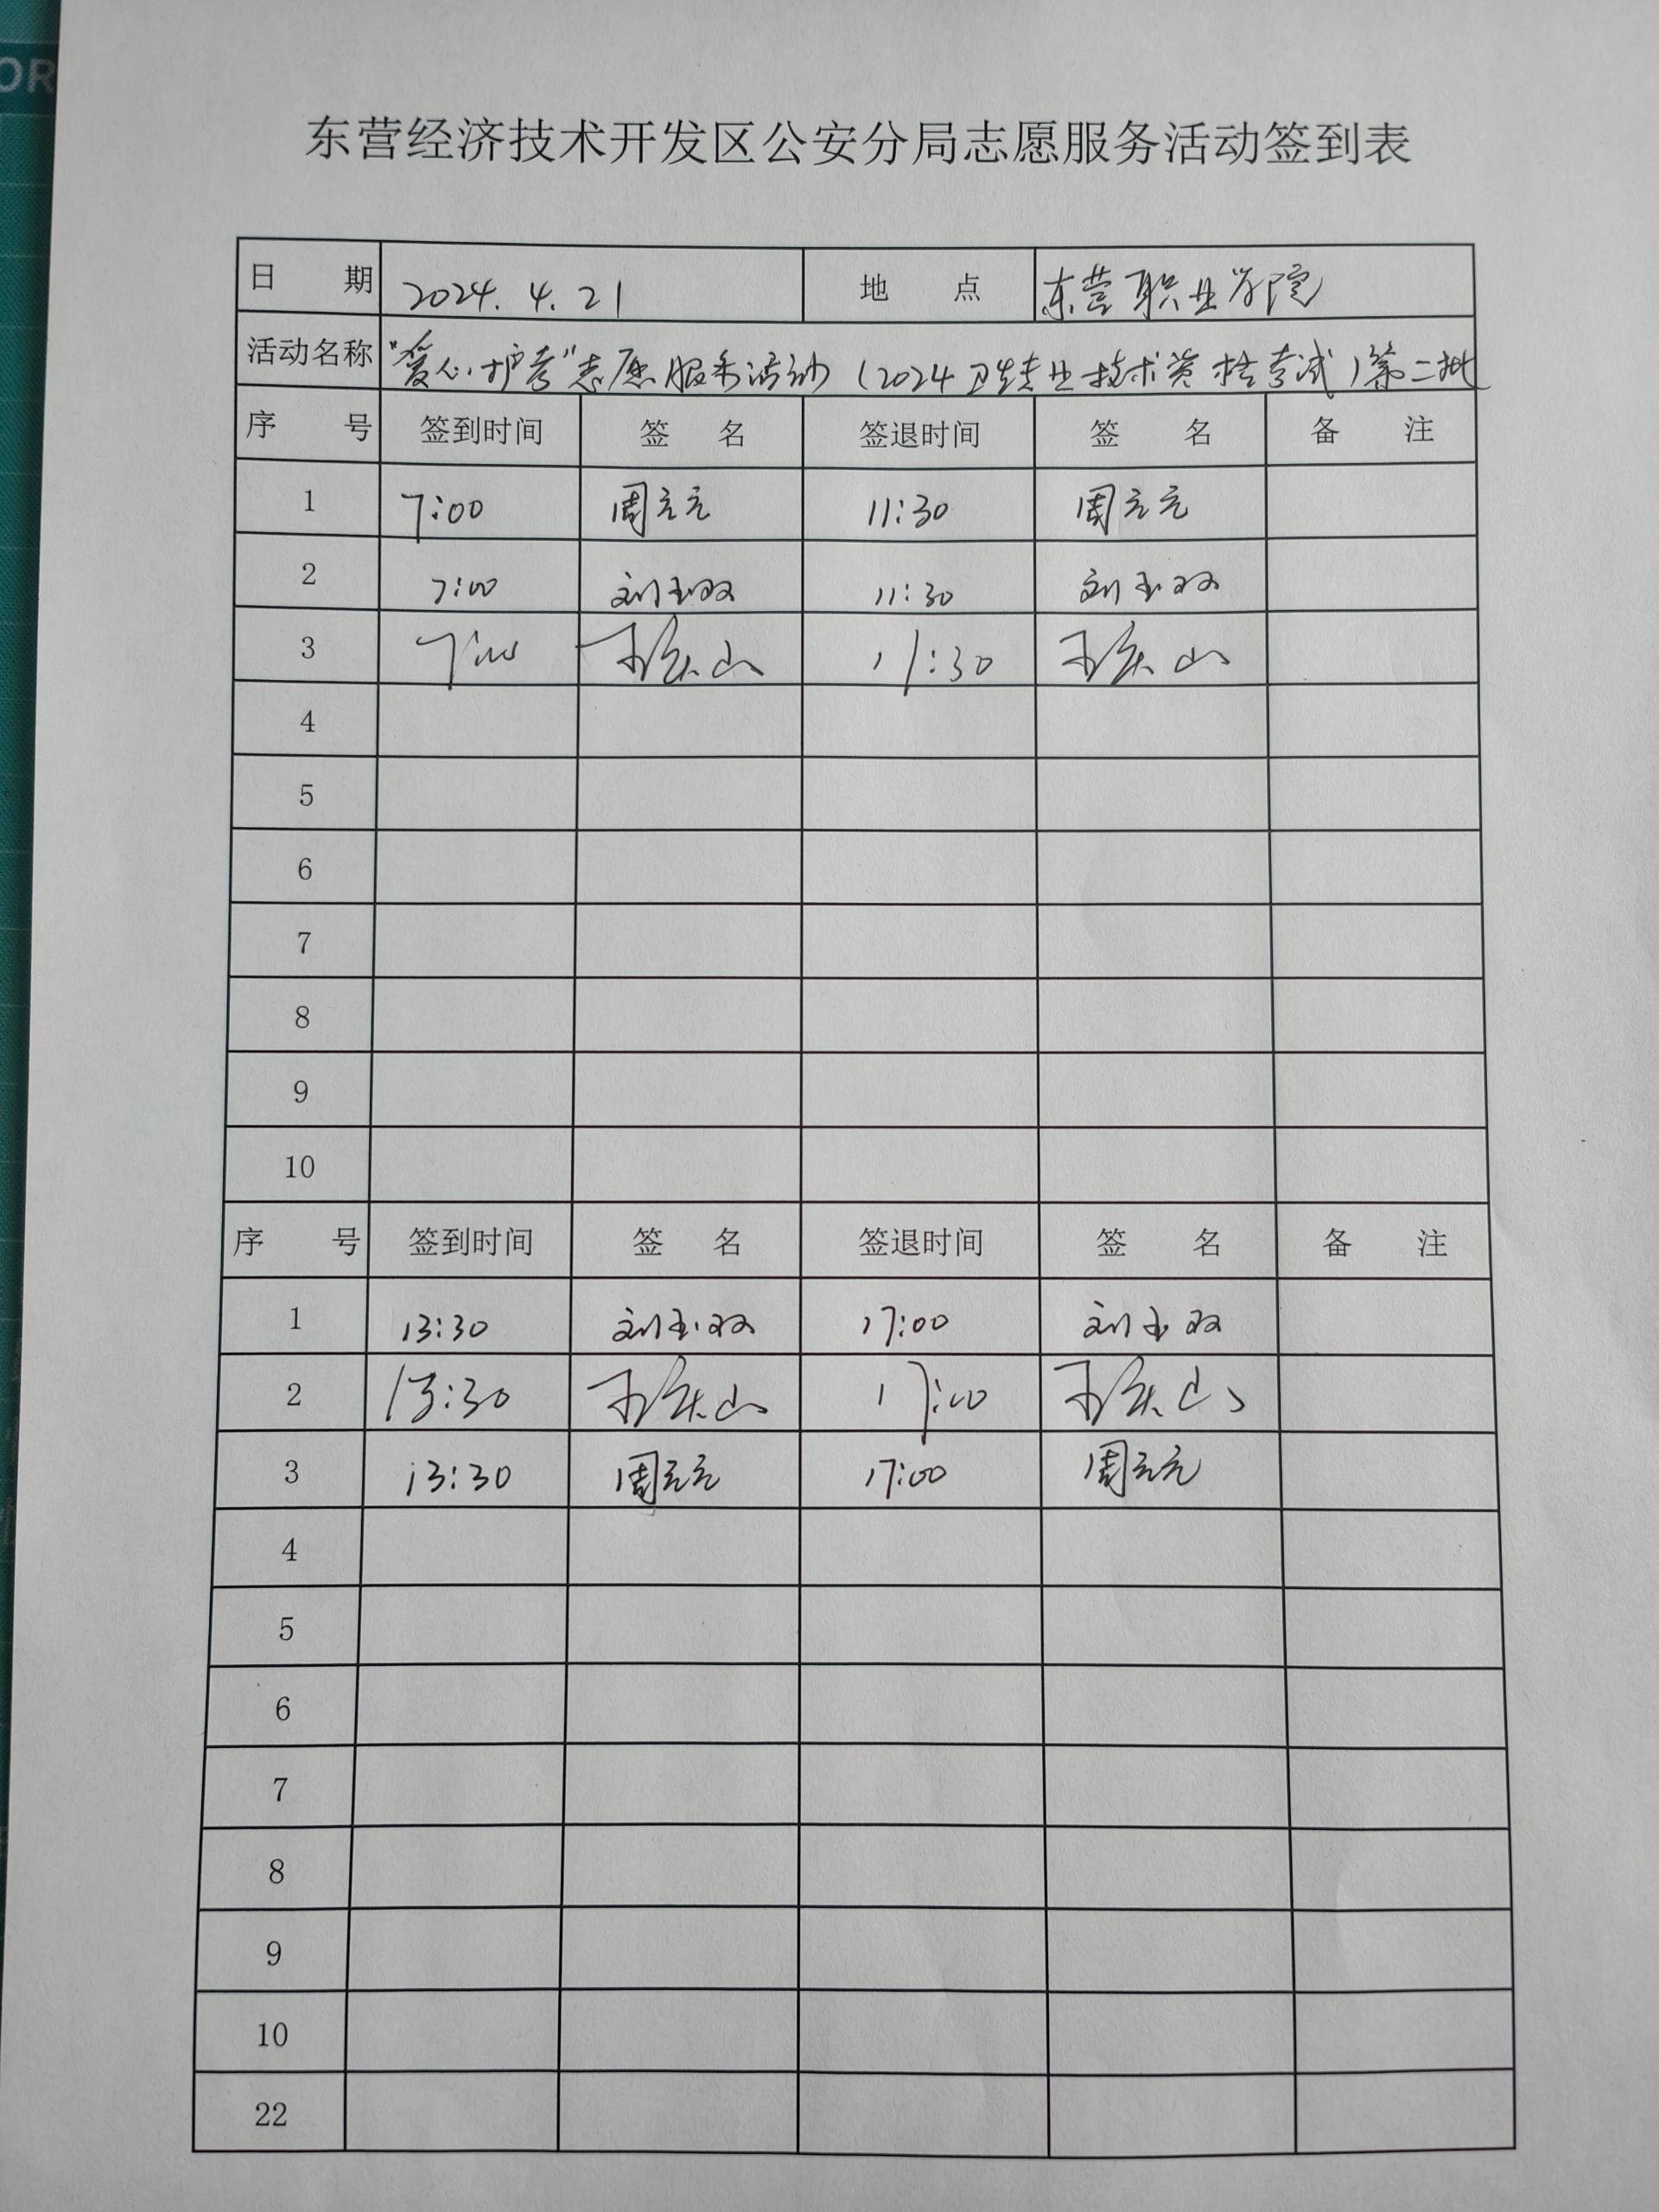 OR
东营经济技术开发区公安分局志愿服务活动签到表
日 期 2024.4.21 地 点 东营职业学院
活动名称 "爱心护考"志愿服务活动(2024卫生专业技术资格考试)第二批
序 号 签到时间 签 名 签退时间 签 名 备 注
1 7:00 周元元 11:30 周元元
2 7:00 刘玉双 11:30 刘玉双
3 7:00 山 11:30 山
4
5
6
7
8
9
10
序 号 签到时间 签 名 签退时间 签 名 备 注
1 13:30 刘玉双 17:00 刘玉双
2 13:30 山 17:00 山
3 13:30 周元元 17:00 周元元
4
5
6
7
8
9
10
22